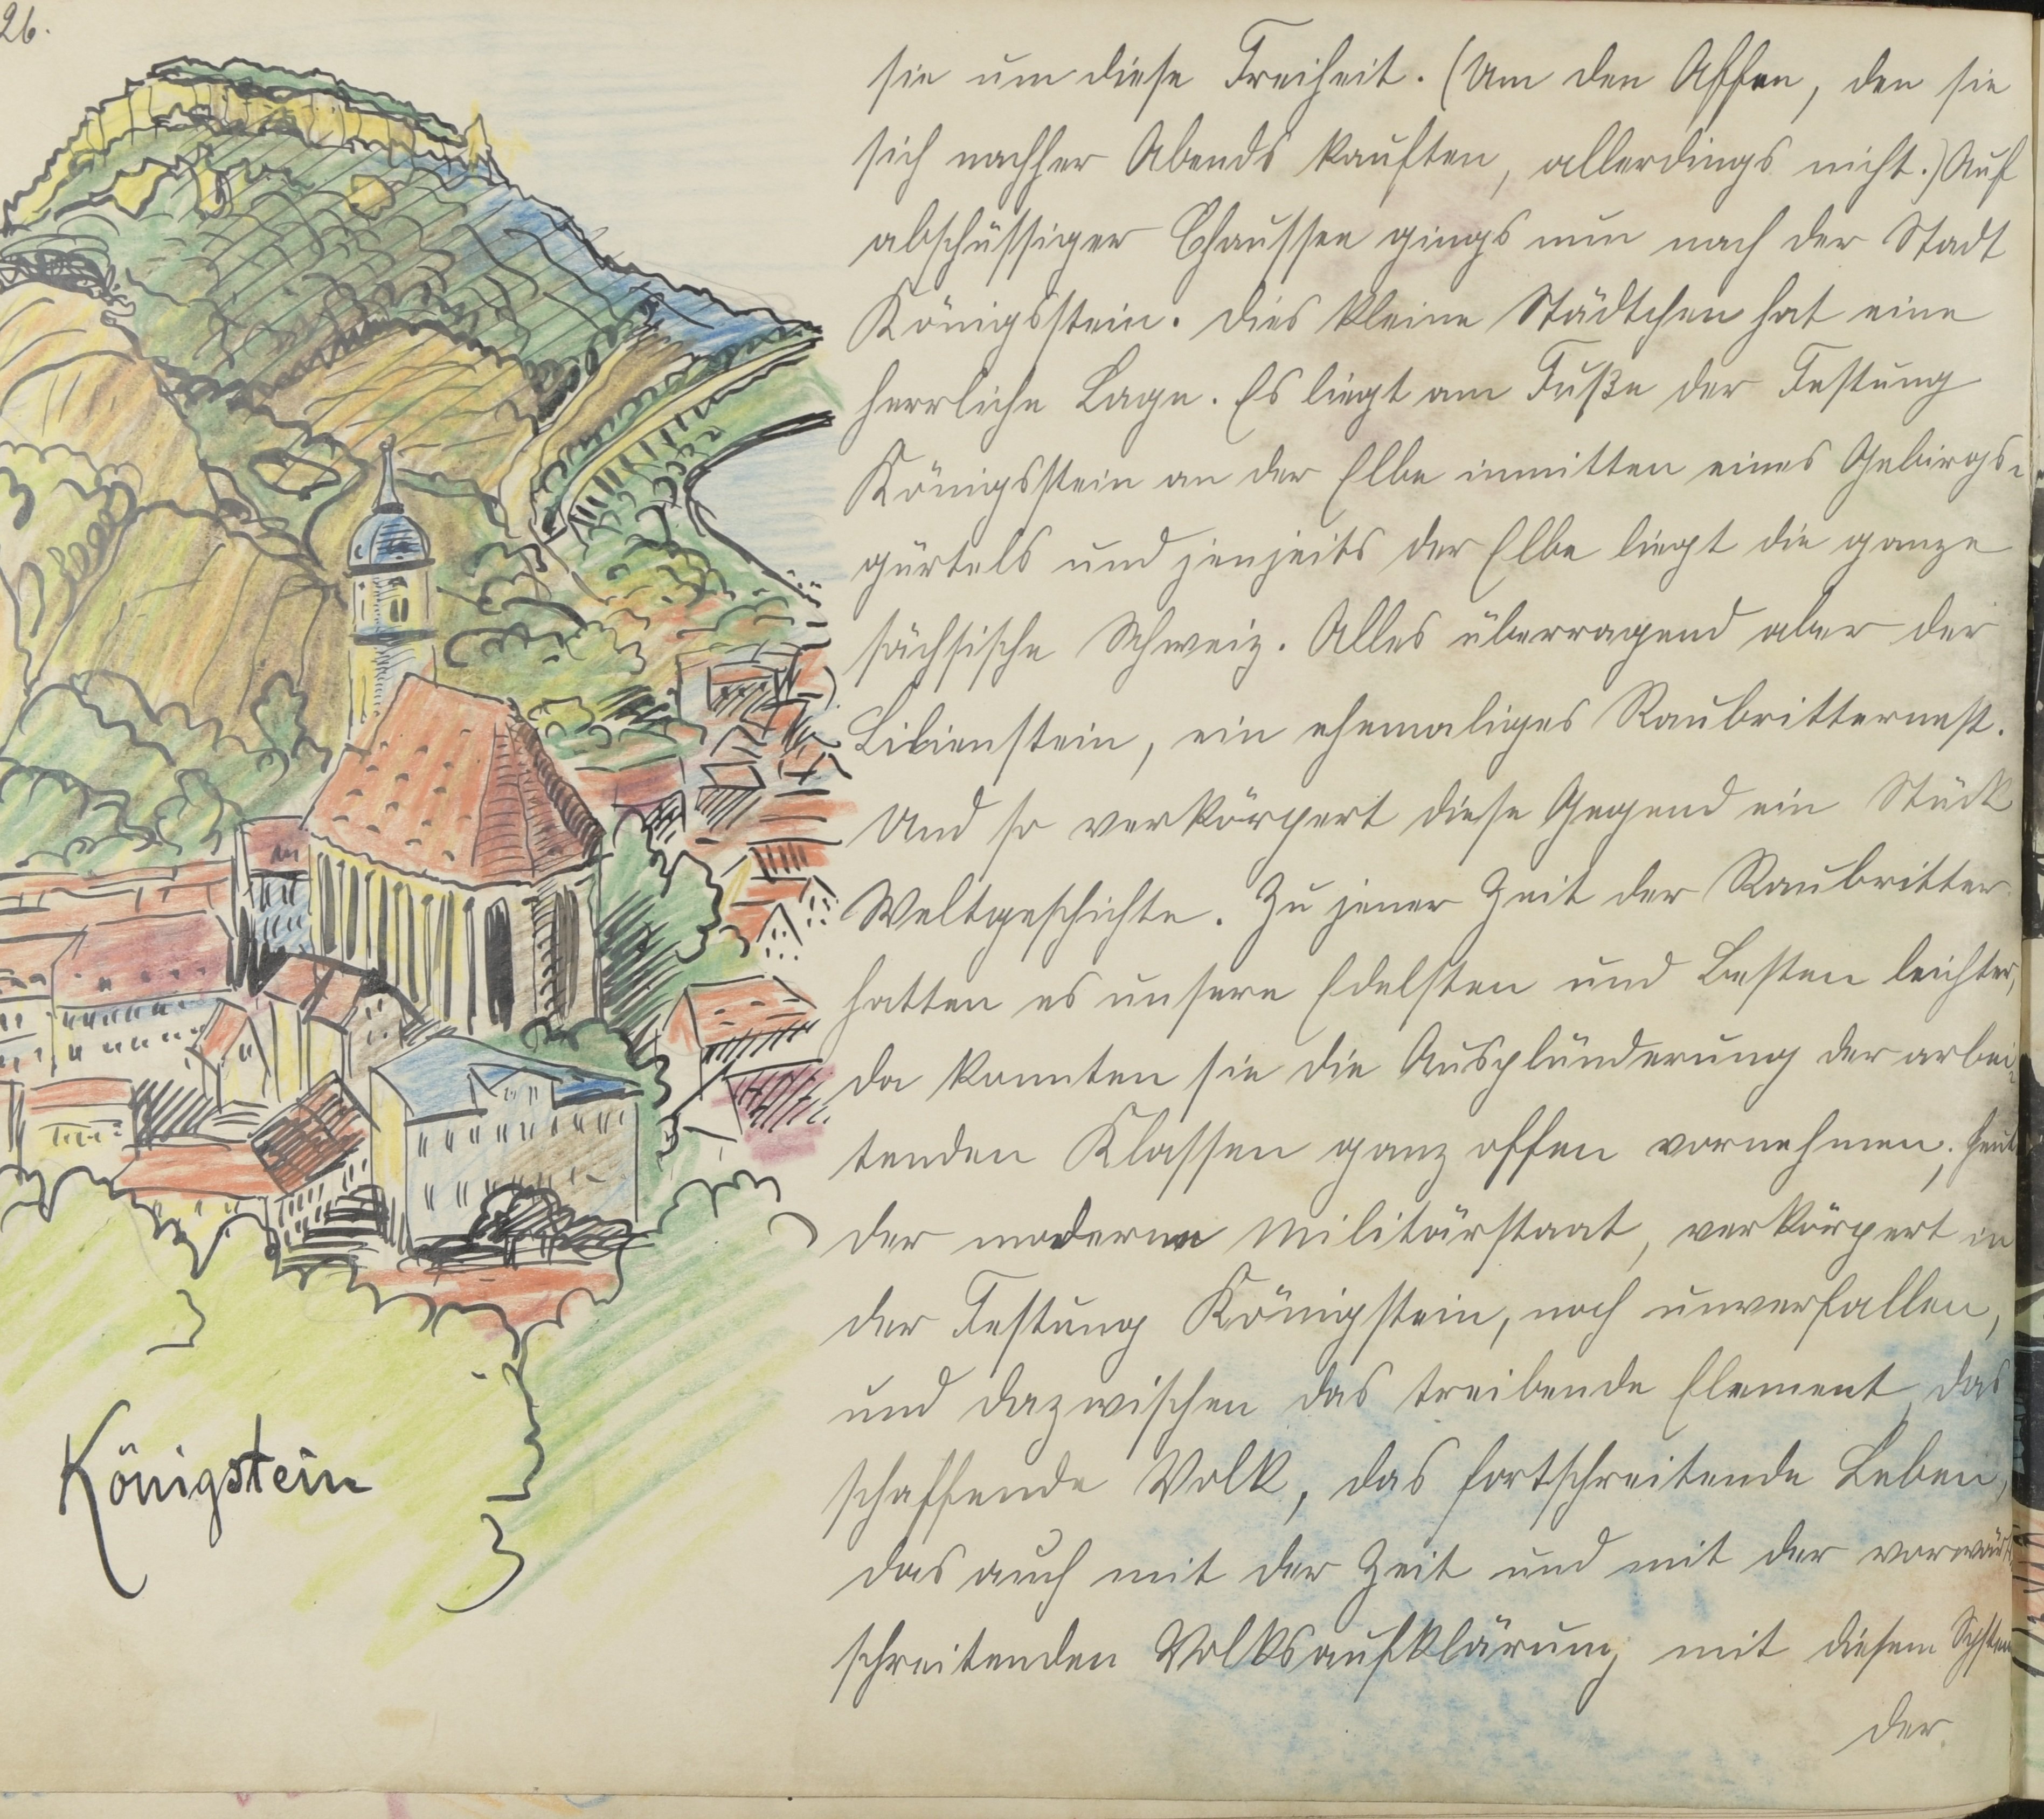 26.
sie um diese Freiheit. (Um den Affen, den sie
sich nachher Abends kauften, allerdings nicht.) Auf
abschüssiger Chaussee gings nun nach der Stadt
Königsstein. Dies kleine Städtchen hat eine
herrliche Lage. Es liegt am Fuße der Festung
Königsstein an der Elbe inmitten eines Gebirgs-
gürtels und jenseits der Elbe liegt die ganze
sächsische Schweiz. Alles überragend aber der
Lilienstein, ein ehemaliges Raubritternest.
Und so verkörpert diese Gegend ein Stück
Weltgeschichte. Zu jener Zeit der Raubritter
hatten es unsere Edelsten und Besten leichter,
da konnten sie die Ausplünderung der arbei-
tenden Klassen ganz offen vornehmen; heut
der moderne Militärstaat, verkörpert in
der Festung Königstein, noch unverfallen,
und dazwischen das treibende Element, das
schaffende Volk, das fortschreitende Leben,
das auch mit der Zeit und mit der vorwärts
schreitenden Volksaufklärung mit diesem System
der
Königstein